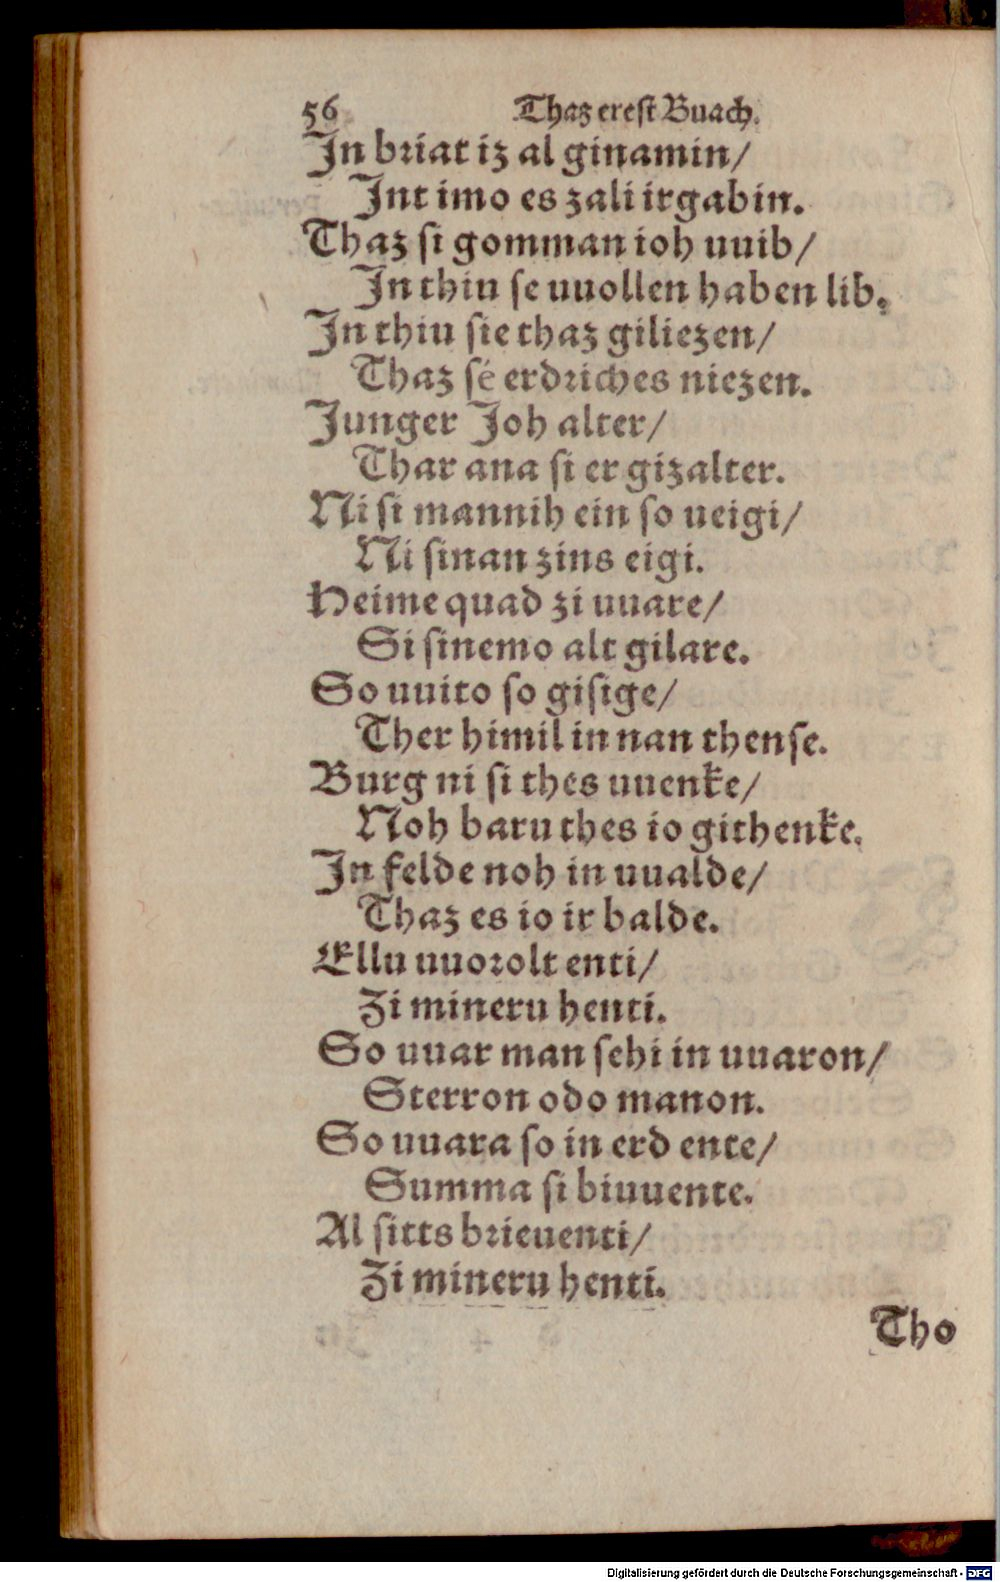 56 Thaz erest Buach.
In briat iz al ginamin/
Int imo es zali irgabin.
Thaz si gomman ioh uuib/
In thiu se uuollen haben lib.
In thiu sie thaz giliezen/
Thaz sé erdriches niezen.
Junger Joh alter/
Thar ana si er gizalter.
Ni si mannih ein so ueigi/
Ni sinan zins eigi.
Heime quad zi uuare/
Si sinemo alt gilare.
So uuito so gisige/
Ther himil in nan thense.
Burg ni si thes uuenke/
Noh baru thes io githenke.
In felde noh in uualde/
Thaz es io ir balde.
Ellu uuorolt enti/
Zi mineru henti.
So uuar man sehi in uuaron/
Sterron odo manon.
So uuara so in erd ente/
Summa si biuuente.
Al sitts brieuenti/
Zi mineru henti.
Tho
Digitalisierung gefördert durch die Deutsche Forschungsgemeinschaft - DFG